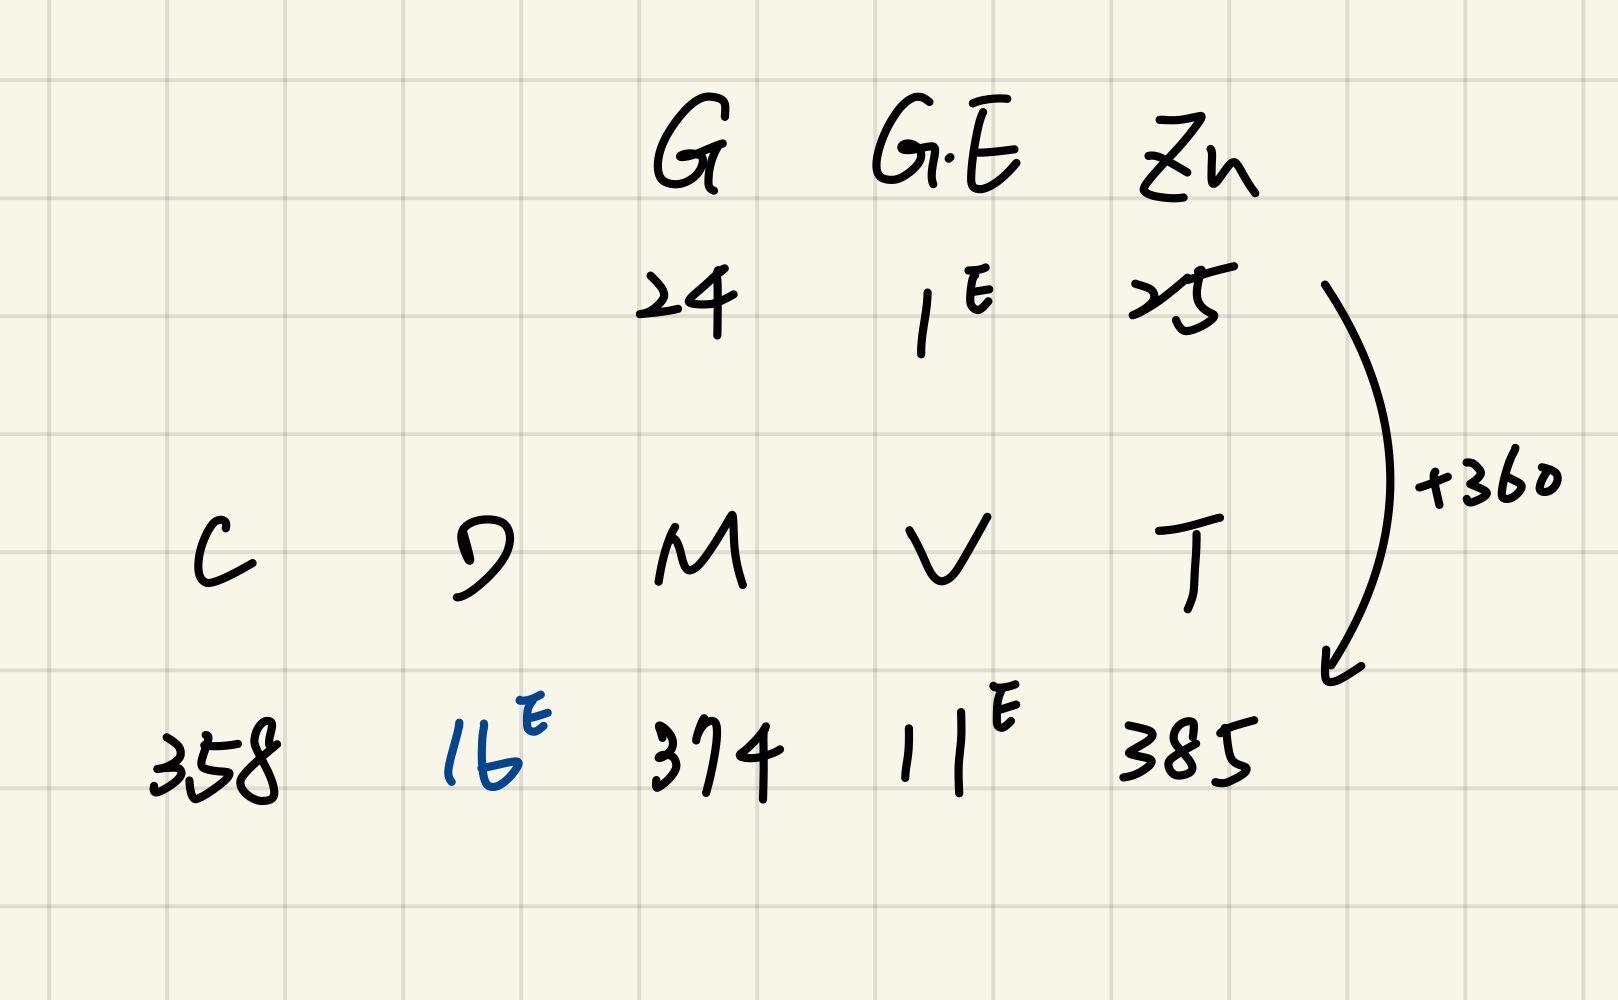 G G.E Zn
24 1ᴱ 25
+360
C D M V T
358 16ᴱ 374 11ᴱ 385